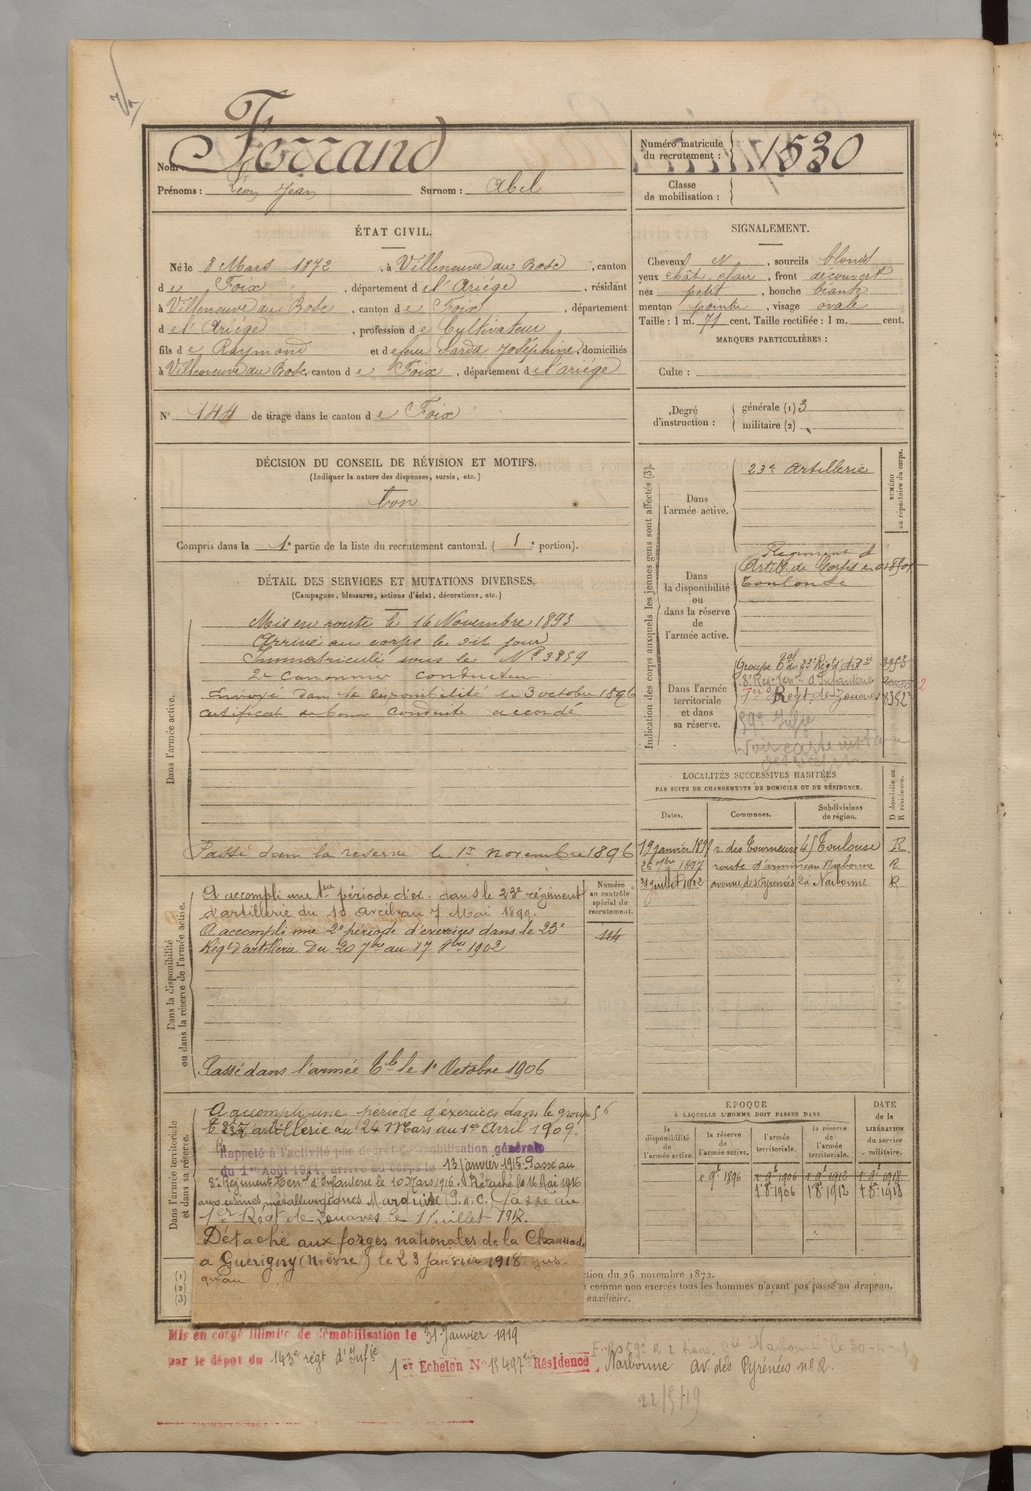 Ferrand
Nom :
Prénoms : Léon Jean Surnom : Abel
Numéro matricule du recrutement : 1530
Classe de mobilisation :
ÉTAT CIVIL.
Né le 8 Mars 1872, à Villeneuve du Bosc, canton
de Foix, département de l'Ariége, résidant
à Villeneuve du Bosc, canton de Foix, département
de l'Ariége, profession de Cultivateur
fils de Raymond et de feue Sarda Joséphine, domiciliés
à Villeneuve du Bosc, canton de Foix, département de l'ariége
N° 144 de tirage dans le canton de Foix
SIGNALEMENT.
Cheveux N, sourcils blonds
yeux chât. clair, front découvert
nez petit, bouche béante
menton pointu, visage ovale
Taille : 1 m. 71 cent. Taille rectifiée : 1 m. cent.
MARQUES PARTICULIÈRES :
Culte :
Degré d'instruction : générale (1) 3
militaire (2)
DÉCISION DU CONSEIL DE RÉVISION ET MOTIFS.
(Indiquer la nature des dispenses, sursis, etc.)
bon
Compris dans la 1e partie de la liste du recrutement cantonal. (1e portion).
DÉTAIL DES SERVICES ET MUTATIONS DIVERSES.
(Campagnes, blessures, actions d'éclat, décorations, etc.)
Dans l'armée active.
Mis en route le 16 Novembre 1893
Arrivé au corps le dit jour
Immatriculé sous le N° 3859
2e Canonnier Conducteur
Envoyé dans la disponibilité le 3 octobre 1896
Certificat de bonne conduite accordé
Passé dans la réserve le 1er novembre 1896
Indication des corps auxquels les jeunes gens sont affectés (3).
NUMÉRO au répertoire du corps.
Dans l'armée active.
23e Artillerie
Dans la disponibilité ou dans la réserve de l'armée active.
Régiment d'
Artil. de Corps
Toulouse
Dans l'armée territoriale et dans sa réserve.
Groupe tal du 23e Régt d'Art
8e Rég ten d'Infanterie
1er Régt de Zouaves 8352
59e Infie
LOCALITÉS SUCCESSIVES HABITÉES
PAR SUITE DE CHANGEMENTS DE DOMICILE OU DE RÉSIDENCE.
Dates. Communes. Subdivisions de région. D domicile ou R résidence.
19 janvier 1897 r. des Tourneurs 45 Toulouse R
26 1897 route d' Narbonne R
31 juillet 1902 avenue des Pyrénées 2 à Narbonne R
Dans la disponibilité ou dans la réserve de l'armée active.
A accompli une 1ere période d'ex. dans le 23e régiment
d'artillerie du 10 avril au 7 Mai 1899.
A accompli une 2e période d'exercices dans le 23e
Régt d'artillerie du 20 7bre au 17 8bre 1902
Passé dans l'armée tle le 1er Octobre 1906
Numéro au contrôle spécial du recrutement.
114
Dans l'armée territoriale et dans sa réserve.
A accompli une période d'exercices dans le groupe
artillerie du 24 Mars au 1er Avril 1909.
Rappelé à l'activité par décret de mobilisation générale
du 1er Août 1914, arrivé au corps le 13 janvier 1915. Passé au
8e Régiment d'Infanterie le 10 Mars 1916. Détaché le 16 Mai 1916
aux usines métallurgiques Marquise P.d.C. Passé au
1er Régt de Zouaves le 1er Juillet 1917.
Détaché aux forges nationales de la Chaussade
a Guérigny (Nièvre) le 23 Janvier 1918 jus-
qu'au
ÉPOQUE
À LAQUELLE L'HOMME DOIT PASSER DANS
la disponibilité de l'armée active. la réserve de l'armée active. l'armée territoriale. la réserve de l'armée territoriale.
DATE de la LIBÉRATION du service militaire.
1896 1906 1912 1918
1906 1912 1918
(1)
(2)
(3)
ction du 26 novembre 1872.
comme non exercés tous les hommes n'ayant pas passé au drapeau.
auxiliaire.
Mis en congé illimité de démobilisation le 31 Janvier 1919
par le dépôt du 143e régt d'Infie 1er Echelon N° 15497 Résidence, Narbonne av. des Pyrénées n° 2.
22/5/19